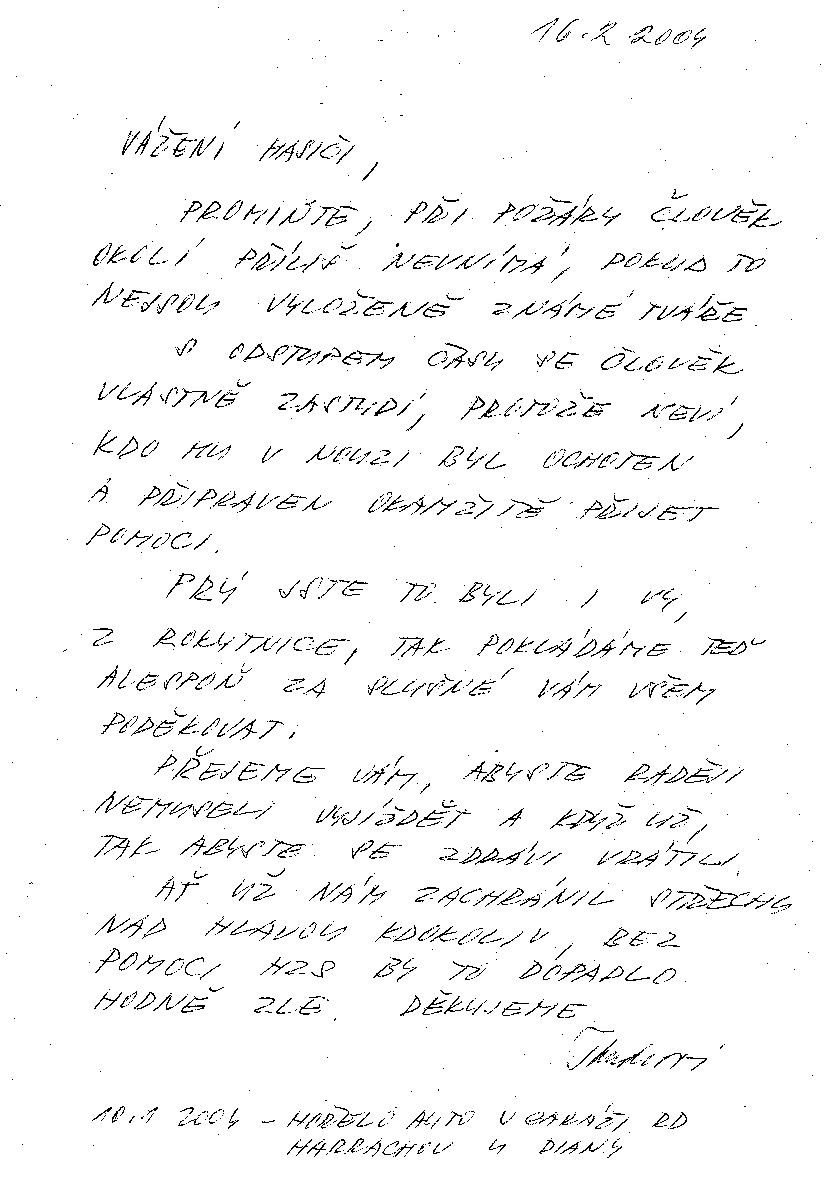 16.2 2004
VÁŽENÍ HASIČI,
PROMIŇTE, PŘI POŽÁRU ČLOVĚK
OKOLÍ PŘÍLIŠ NEVNÍMÁ, POKUD TO
NEJSOU VYLOŽENĚ ZNÁMÉ TVÁŘE.
S ODSTUPEM ČASU SE ČLOVĚK
VLASTNĚ ZASTUDÍ, PROTOŽE NEVÍ,
KDO MU V NOUZI BYL OCHOTEN
A PŘIPRAVEN OKAMŽITĚ PŘIJET
POMOCI.
PRÝ JSTE TO BYLI I VY,
Z ROKYTNICE, TAK POKLÁDÁME TEĎ
ALESPOŇ ZA SLUŠNÉ VÁM VŠEM
PODĚKOVAT.
PŘEJEME VÁM, ABYSTE RADĚJI
NEMUSELI VYJÍŽDĚT A KDYŽ UŽ,
TAK ABYSTE SE ZDRÁVI VRÁTILI.
AŤ UŽ NÁM ZACHRÁNIL STŘECHU
NAD HLAVOU KDOKOLIV, BEZ
POMOCI HZS BY TO DOPADLO
HODNĚ ZLE. DĚKUJEME
10.1 2004 - HOŘELO AUTO V GARÁŽI RD
HARRACHOV U DIANY